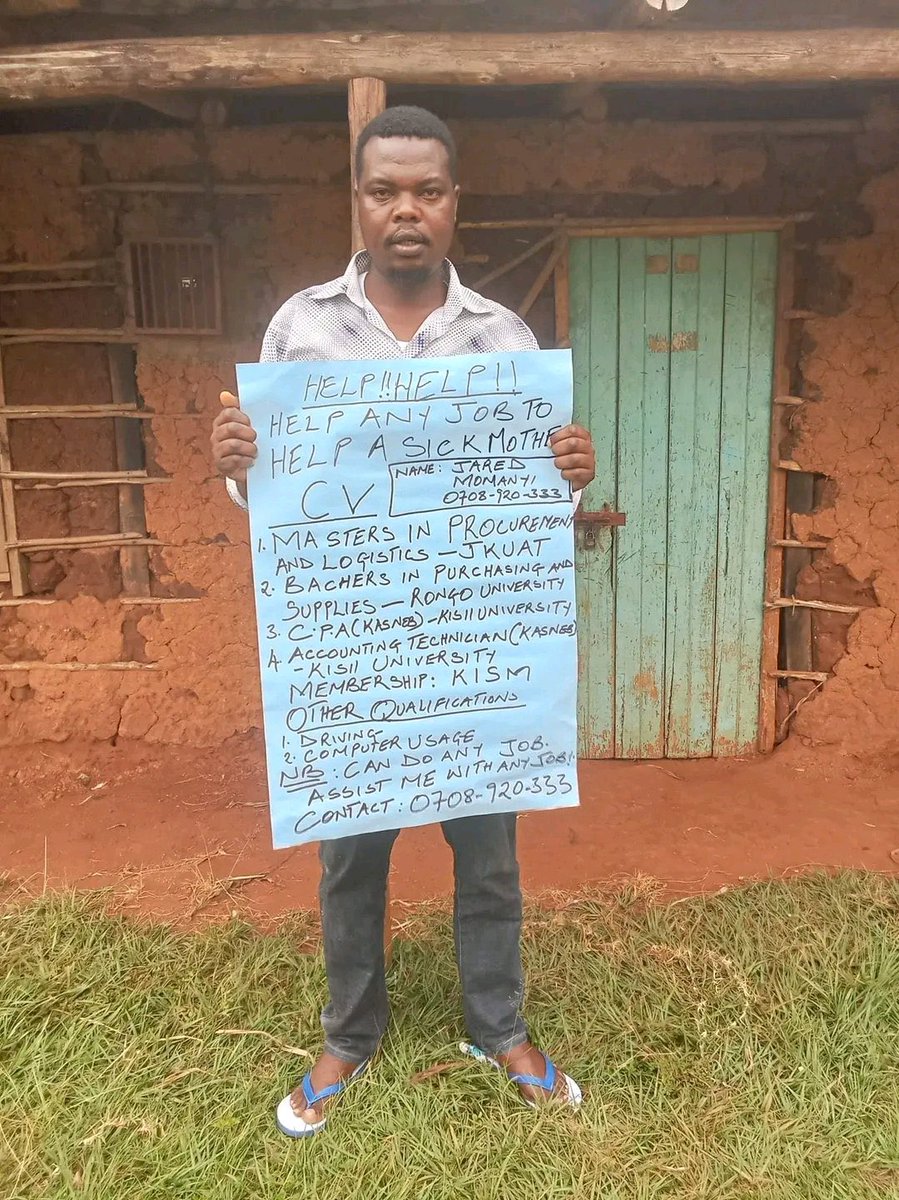 HELP!! HELP!!
HELP ANY JOB TO
HELP A SICK MOTHE
CV
NAME: JARED
MOMANYI
0708-920-333
1. MASTERS IN PROCUREMENT
AND LOGISTICS - JKUAT
2. BACHERS IN PURCHASING AND
SUPPLIES - RONGO UNIVERSITY
3. C.P.A (KASNEB) - KISII UNIVERSITY
4. ACCOUNTING TECHNICIAN (KASNEB)
- KISII UNIVERSITY
MEMBERSHIP: KISM
OTHER QUALIFICATIONS
1. DRIVING
2. COMPUTER USAGE
NB: CAN DO ANY JOB.
ASSIST ME WITH ANY JOB!
CONTACT: 0708-920-333